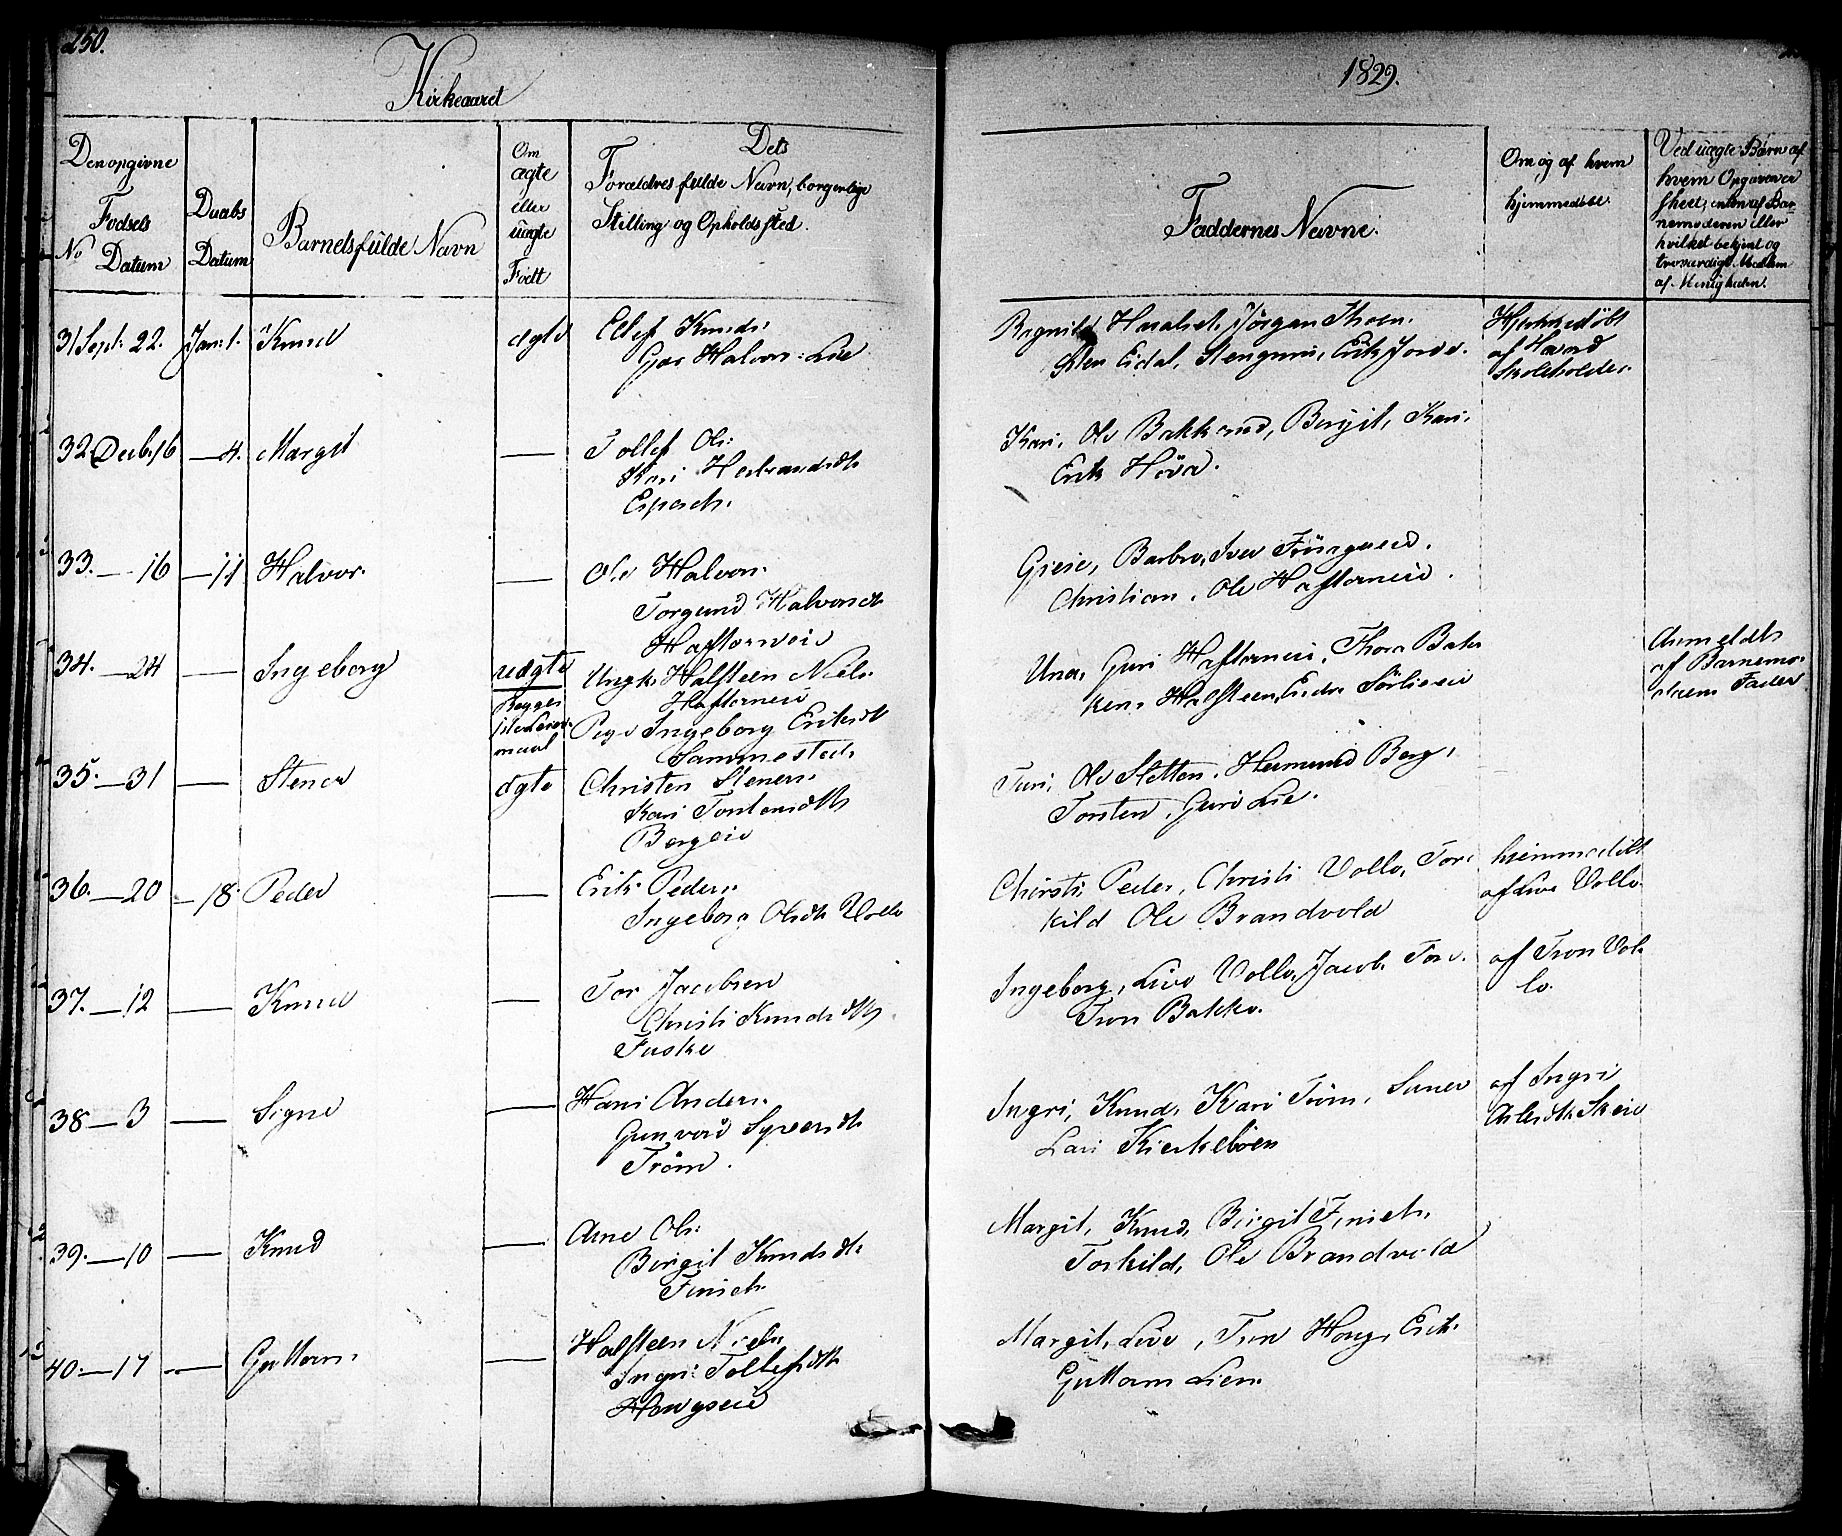 250.
Kirkeaaret
1829.
Den opgivne
Fødsels
No Datum
Daabs
Datum
Barnets fulde Navn
Om
ægte
eller
uægte
Født
Dets
Forældres fulde Navn, borgerlige
Stilling og Opholdssted.
Faddernes Navne.
Om og af hvem
hjemmedøbt.
Ved uægte Børn af
hvem Opgaven er
skeet, enten af Bar-
nemoderen eller
hvilket bekjent og
troværdigt Medlem
af Menigheden.
31 Sept: 22. Jan: 1. Knud ægte Ellef Knuds:
Gro Halvors: Lie
Ragnild Jørgen
Sten Eidal, Stengrim, Erik
Hjemmedøbt
af
Skoleholder.
32 Decb. 16 — 4. Margit — Tollef Ols:
Kari
Espeseth.
Kari, Ole Bakkerud, Bergit, Kari,
Erik
33. — 16 — 11 Halvor. — Ole Halvors:
Torgund Halvorsdtr
Haftorneie
Barbro, Iver
Christian, Ole Haftorneie.
34. — 24 — Ingeborg uægte Ungk. Halsteen Niels:
Haftorneie
Begges
1ste Leier-
maal
Pige Ingeborg Eriksdtr
Sammesteds
Una, Guri Haftorneie, Thora Bak-
ken, Halsteen, Endre
Anmeldt
af Barnemo-
derens Fader
35. — 31 — Stener ægte Christen Steners:
Kari Torstensdtr
Bergeie
Turi, Ole Sletten, Hermund Berg,
Torsten, Guri Lie.
36. — 20 — 18. Peder — Erik Peders:
Ingeborg Olsdtr Vollo
Christi, Peder, Christi Vollo, Tor-
kild Ole Brandvold
hjemmedøbt
af Live Vollo.
37. — 12 — Knud — Tor Jacobsen
Christi Knudsdtr
Fuske
Ingeborg, Live Vollo, Jacob, Tore,
Tron Bakko.
af Tron Vol-
lo.
38 — 3 — Signe — Hans Anders:
Gunvord Syversdtr
Trøm.
Ingri, Knud, Kari Trøm,
Lars Kirkebøen
af Ingri
Skeie
39. — 10 — Knud — Arne Ols:
Birgit Knudsdtr
Finseth.
Margit, Knud, Birgit Finseth,
Torkild, Ole Brandvold
40. — 17 — Guttorm. — Halsteen Niels:
Ingri Tollefsdtr
Haugseie
Margit, Live, Haug, Erik,
Guttorm Lien.